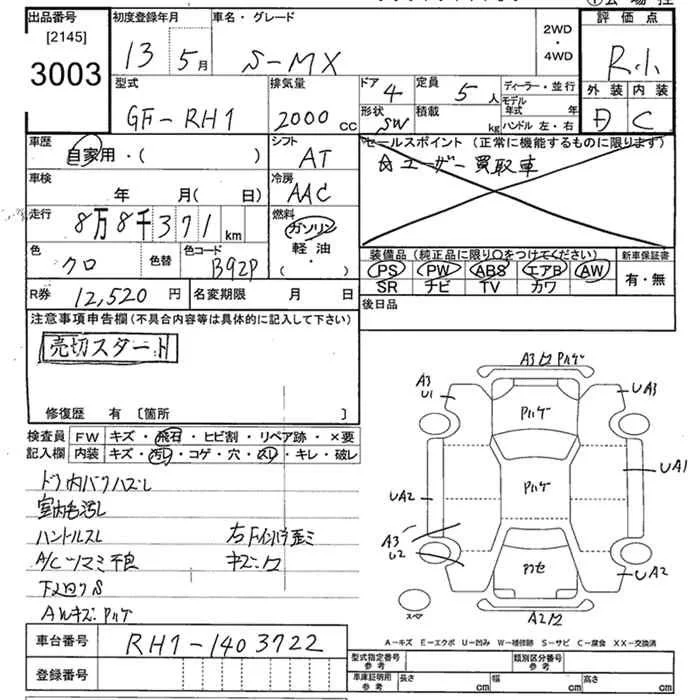 出品番号
[2145]
3003
初度登録年月
13 5月
車名・グレード
S-MX
2WD
・
4WD
評価点
R小
外装 内装
D C
型式
GF-RH1
排気量
2000 cc
ドア 4
定員 5 人
形状 SW
積載 kg
ディーラー・並行
モデル年式 年
ハンドル 左・右
車歴
自家用・( )
シフト
AT
セールスポイント (正常に機能するものに限ります)
☆ユーザー買取車
車検
年 月( 日)
冷房
AAC
走行
8万8千371km
燃料
ガソリン
軽油
・
( )
色
クロ
色替
色コード
B92P
装備品 (純正品に限り○をつけてください)
PS PW ABS エアB AW
SR ナビ TV カワ
新車保証書
有・無
R券 12,520 円
名変期限 月 日
後日品
注意事項申告欄 (不具合内容等は具体的に記入して下さい)
売切スタート
修復歴 有 [箇所 ]
検査員
記入欄
FW キズ・飛石・ヒビ割・リペア跡・×要
内装 キズ・汚レ・コゲ・穴・スレ・キレ・破レ
ドア内バリハズレ
室内毛汚レ
ハンドルスレ
A/Cツマミ不良
下回りS
AWキズ・Pハゲ
右Fインパネ歪ミ
A3 U1
Pハゲ
UA3
UA1
UA2
Pハゲ
A3
U2
UA2
スペア
A2
A-キズ E-エクボ U-凹み W-補修跡 S-サビ C-腐食 XX-交換済
車台番号
RH1-1403722
登録番号
型式指定番号
参考
類別区分番号
参考
車庫証明用
参考
長さ cm
幅 cm
高さ cm